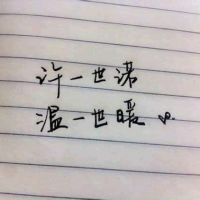 许一世诺
温一世暖